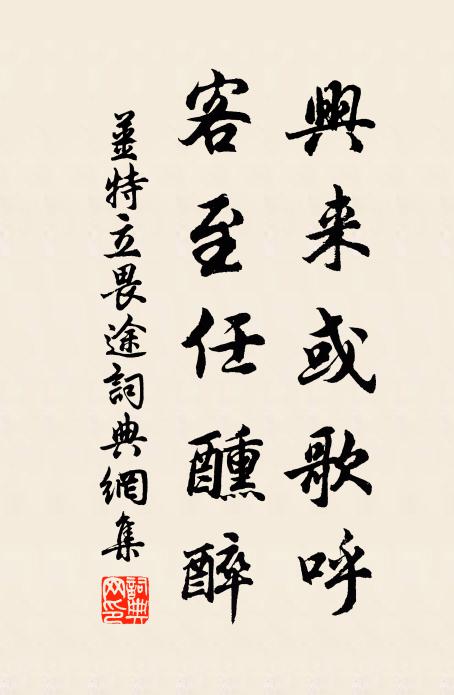 興来或歌呼
客至任醺醉
姜特立畏途詞典網集
詞典网印